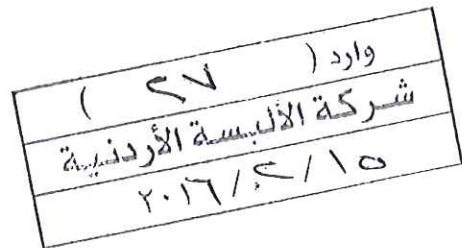 وارد ( ٢٧ )
شركة الألبسة الأردنية
٢٠١٦/٢/١٥